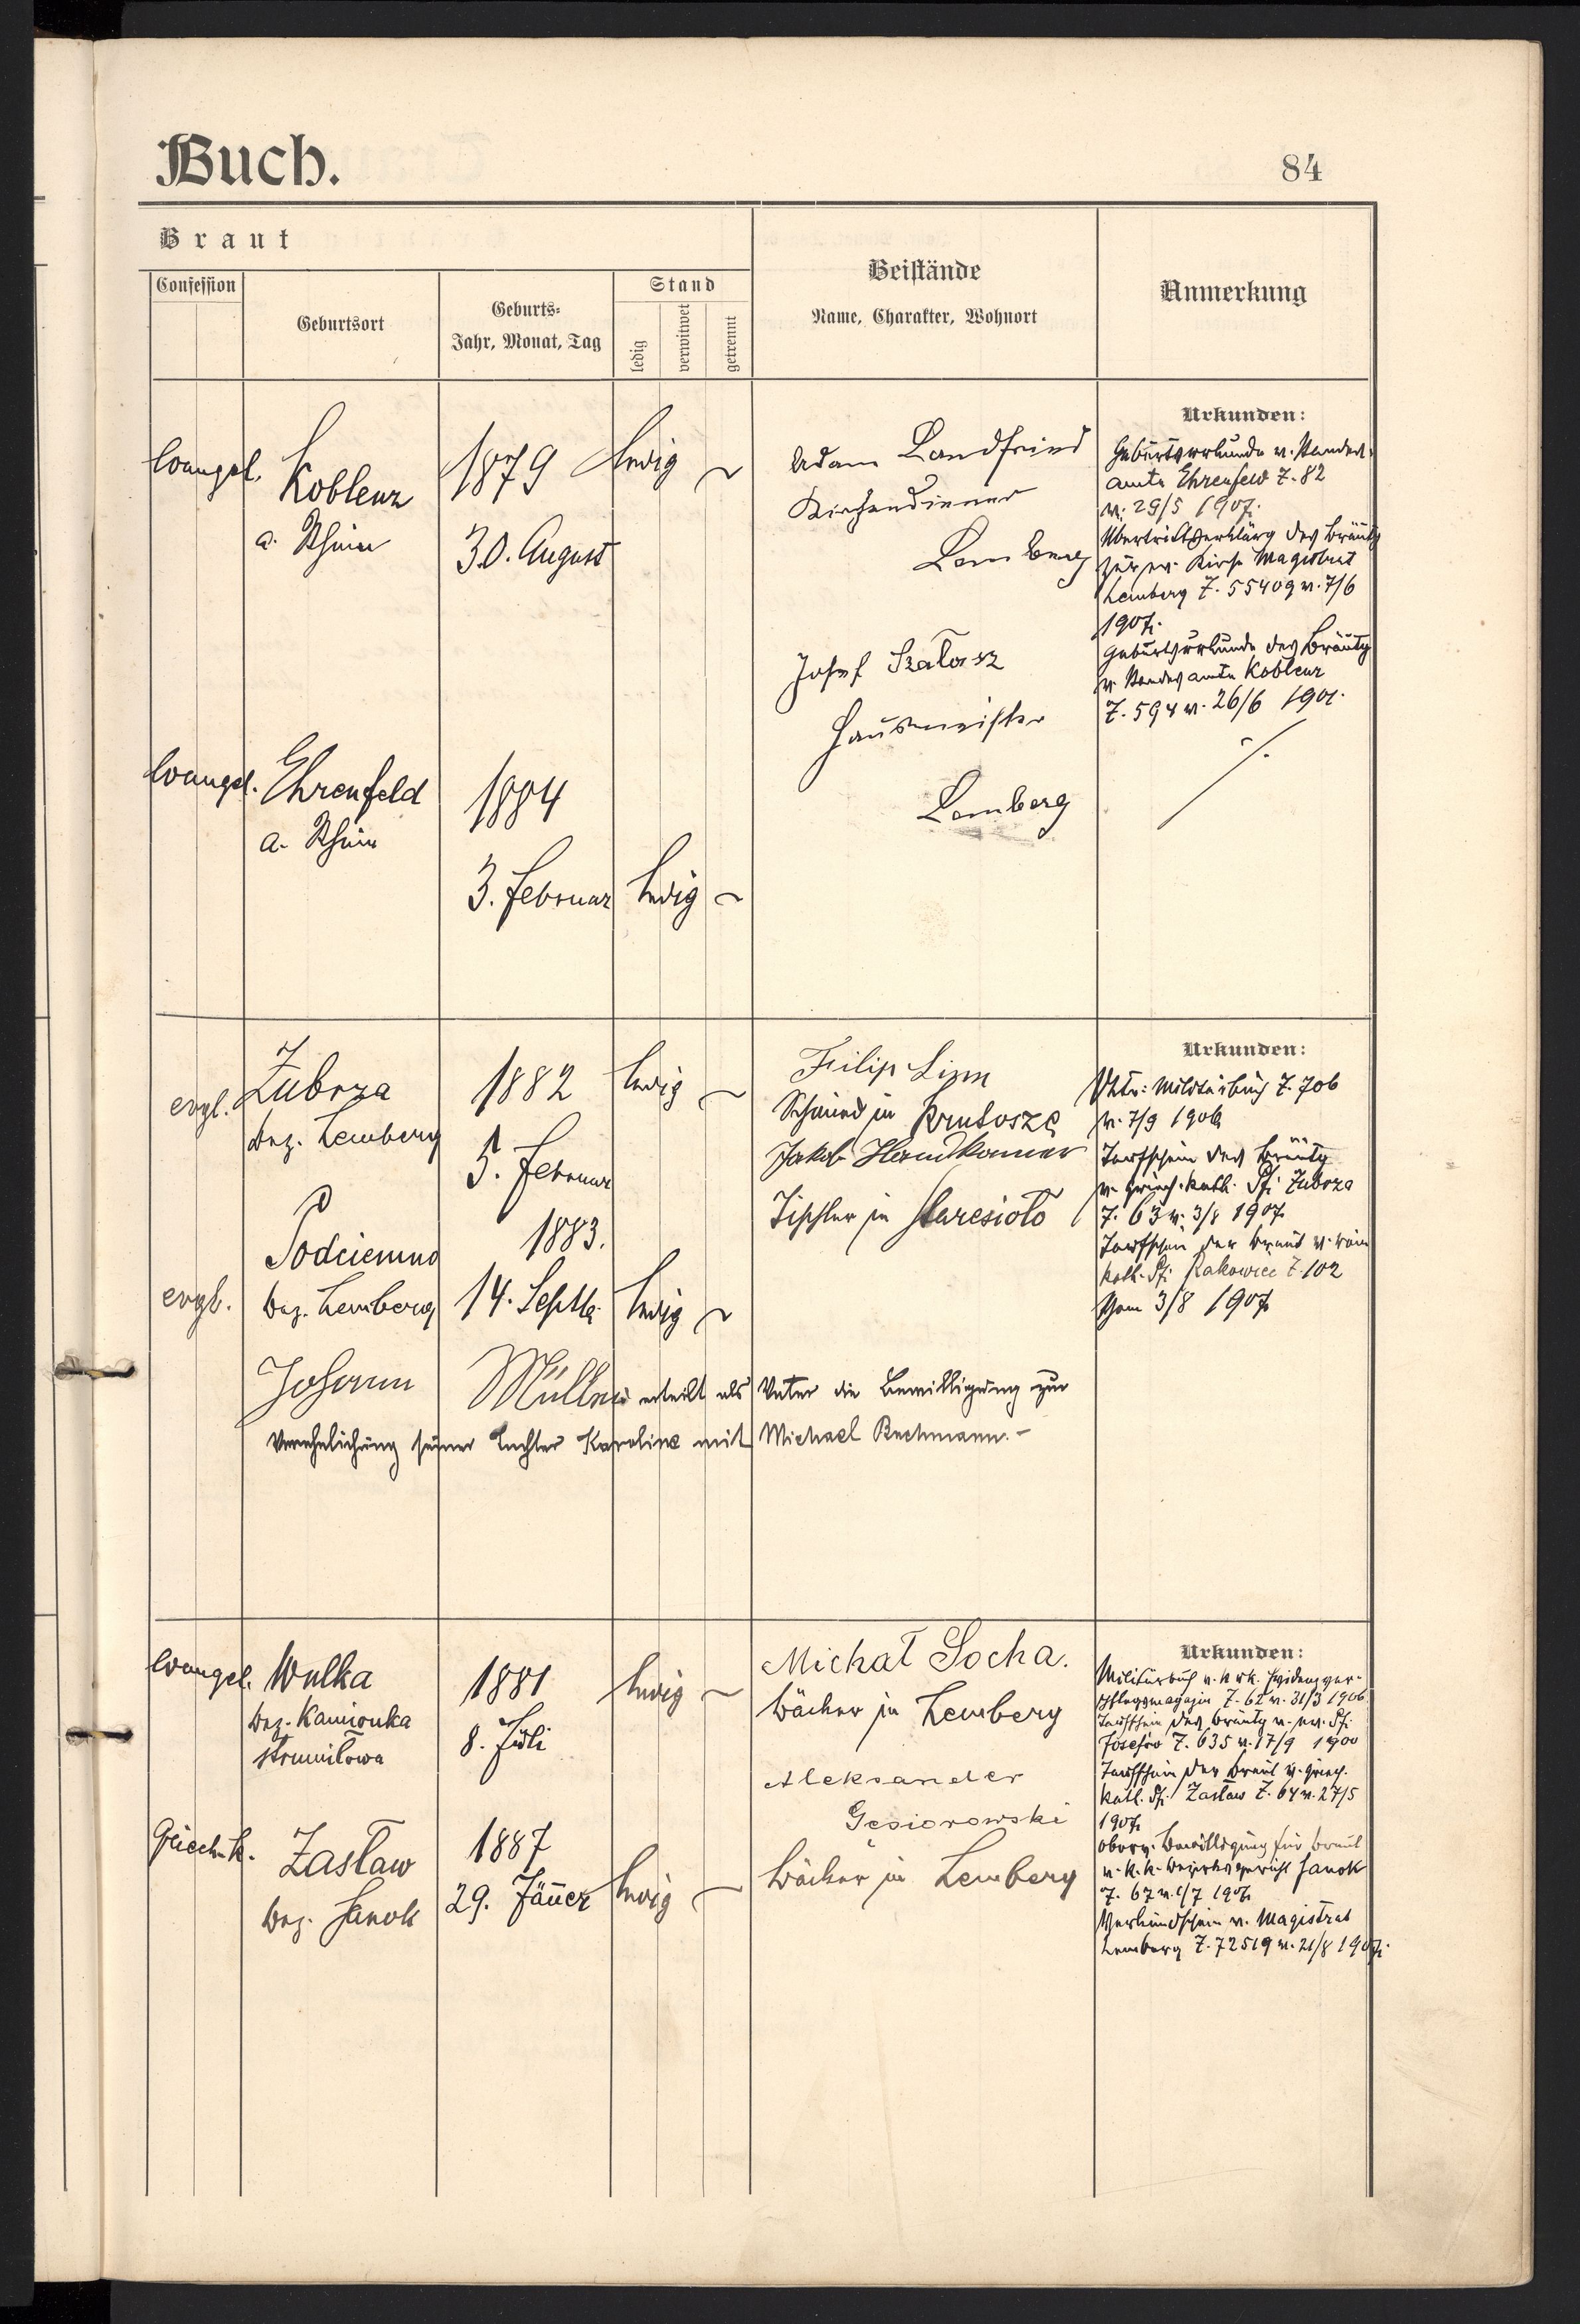 Buch.
84
Braut
Confession
Geburtsort
Geburts-
Jahr, Monat, Tag
Stand
ledig
verwitwet
getrennt
Beistände
Name, Charakter, Wohnort
Anmerkung
Evangel.
Koblenz
a. Rhein
1879
30. August
ledig
Adam Landfried
Kirchendiener
Lemberg
Josef Szałasz
Hausmeister
Lemberg
Urkunden:
Geburtsurkunde v. Standes-
amte Ehrenfeld Z. 82
v. 29/5 1907.
Übertrittserklärg des Bräutg
zur ev. Kirche Magistrat
Lemberg Z. 55409 v. 7/6
1907.
Geburtsurkunde des Bräutg
v. Standesamte Koblenz
Z. 594 v. 26/6 1901.
Evangel.
Ehrenfeld
a. Rhein
1884
3. Februar
ledig
evgl.
Zubrza
Bez. Lemberg
1882
5. Februar
ledig
Filip Linn
Schmied in
Jakob
Tischler in Staresioło
Urkunden:
Militärbuch Z. 706
v. 7/9 1906
Taufschein des Bräutg
v. griech. kath. Pf. Zubrza
Z. 63 v. 3/8 1907.
Taufschein der Braut v. röm
kath. Pf. Rakowiec Z. 102
vom 3/8 1907.
evgl.
Podciemno
Bez. Lemberg
1883.
14. Septb.
ledig
Johann Müller erteilt als Vater die Bewilligung zur
Verehelichung seiner Tochter Karoline mit Michael Bechmann.-
Evangel.
Wulka
Bez. Kamionka
strumiłowa
1881
8. Juli
ledig
Michał Socha.
Bäcker in Lemberg
Aleksander
Gąsiorowski
Bäcker in Lemberg
Urkunden:
Militärbuch v. k. u. k.
Z. 62 v. 31/3 1906
Taufschein des Bräutg v. ev. Pf.
Josefów Z. 635 v. 17/9 1900
Taufschein der Braut v. griech.
kath. Pf. Zasław Z. 64 v. 27/5
1907.
Bewilligung für Braut
v. k. k. Bezirksgericht Sanok
Z. 67 v. 1/7 1907.
Verkündschein v. Magistrat
Lemberg Z. 72519 v. 21/8 1907.
Griech. k.
Zasław
Bez. Sanok
1887
29. Jäner
ledig